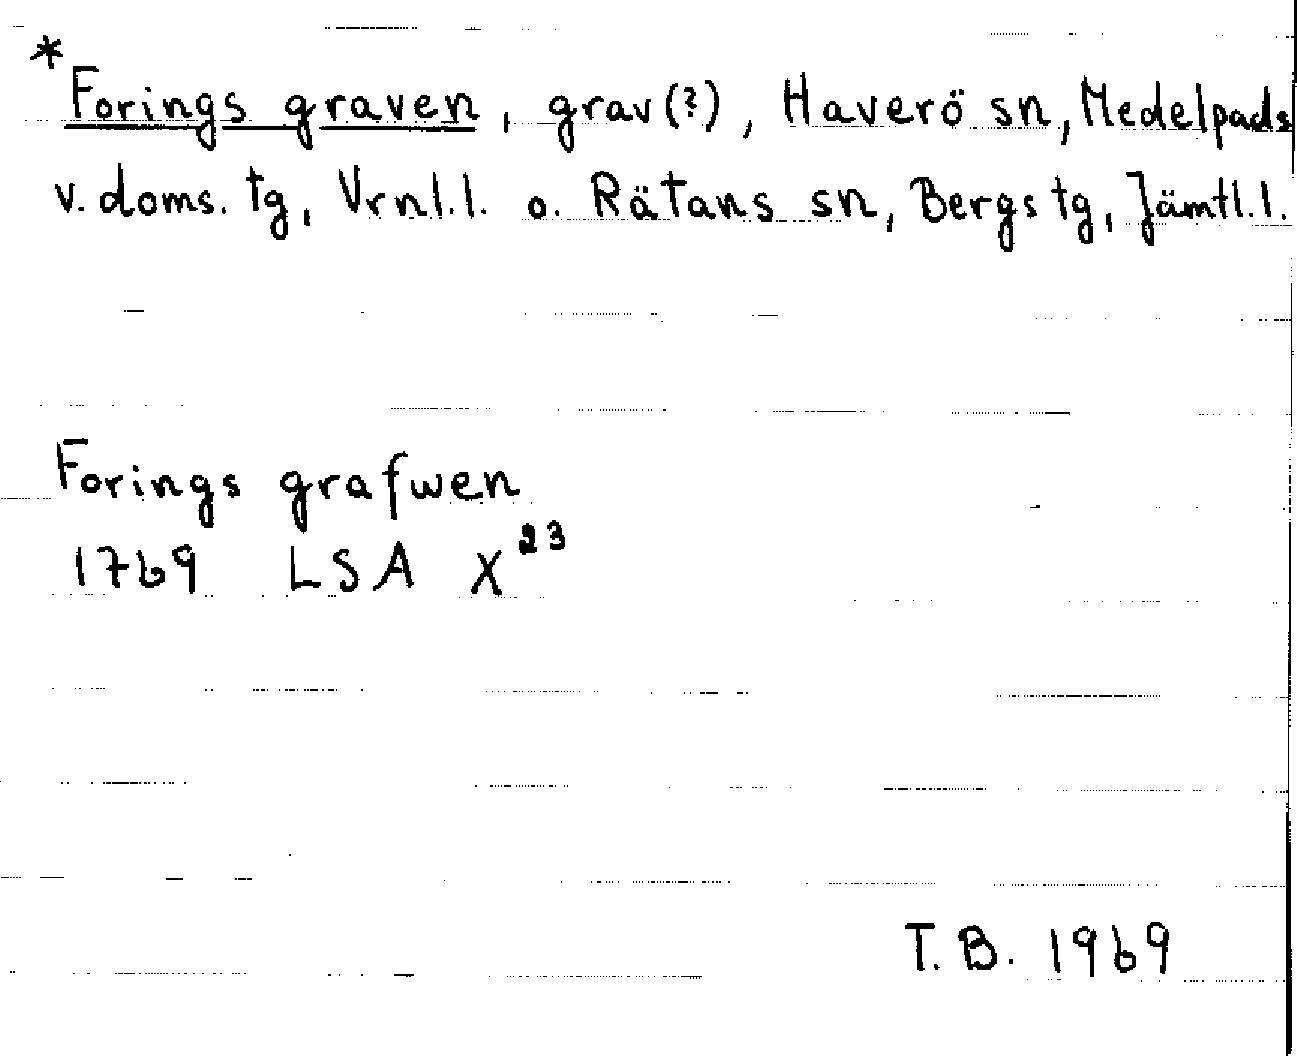 * Forings graven, grav(?), Haverö sn, Medelpads
v. doms. tg, Vrnl.l. o. Rätans sn, Bergs tg, Jämtl.l.
Forings grafwen
1769 LSA X²³
T.B. 1969